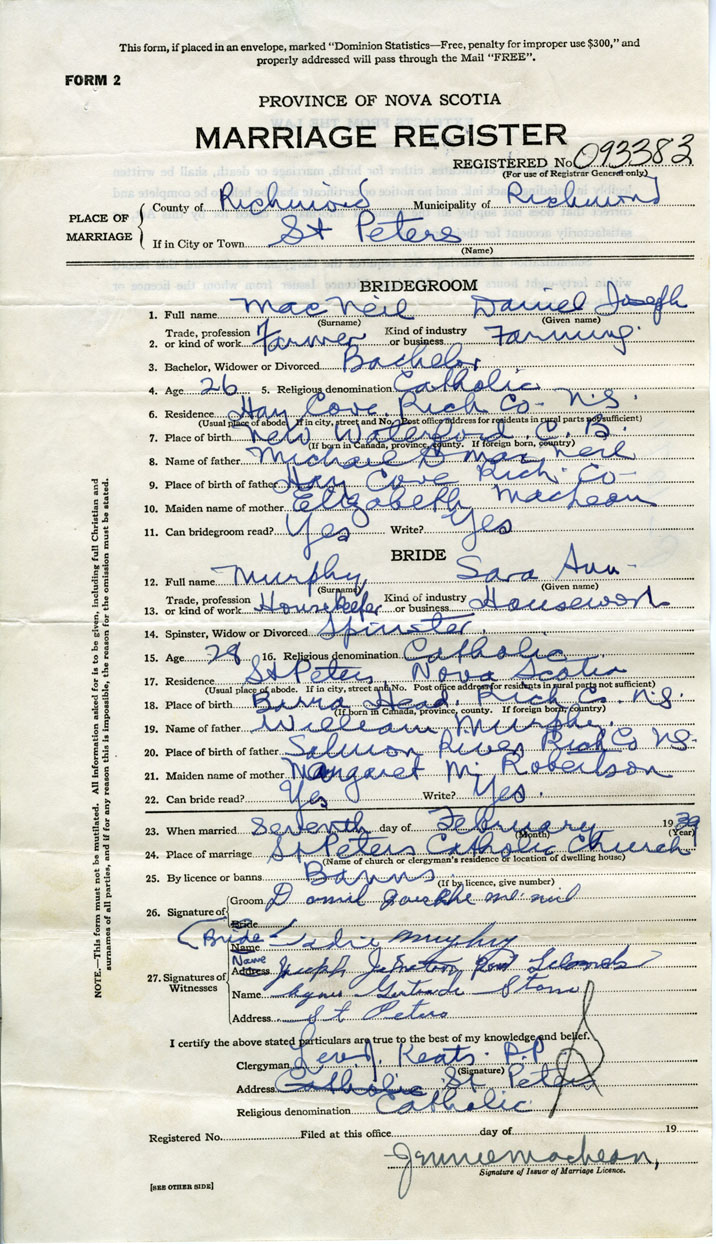 This form, if placed in an envelope, marked "Dominion Statistics—Free, penalty for improper use $300," and
properly addressed will pass through the Mail "FREE".
FORM 2
PROVINCE OF NOVA SCOTIA
MARRIAGE REGISTER
REGISTERED No. 093383
(For use of Registrar General only)
PLACE OF MARRIAGE
County of Richmond Municipality of Richmond
If in City or Town St Peters
(Name)
BRIDEGROOM
1. Full name MacNeil Daniel Joseph
(Surname) (Given name)
2. Trade, profession or kind of work Farmer Kind of industry or business Farming.
3. Bachelor, Widower or Divorced Bachelor
4. Age 26 5. Religious denomination Catholic
6. Residence Hay Cove. Rich Co- N.S.
(Usual place of abode. If in city, street and No. Post office address for residents in rural parts not sufficient)
7. Place of birth New Waterford. C. B.
(If born in Canada, province, county. If foreign born, country)
8. Name of father Michael D MacNeil
9. Place of birth of father Hay Cove Rich. Co-
10. Maiden name of mother Elizabeth MacLean
11. Can bridegroom read? Yes Write? Yes
BRIDE
12. Full name Murphy, Sara Ann-
(Surname) (Given name)
13. Trade, profession or kind of work Housekeeper Kind of industry or business Housework
14. Spinster, Widow or Divorced Spinster.
15. Age 28 16. Religious denomination Catholic
17. Residence St Peters, Nova Scotia
(Usual place of abode. If in city, street and No. Post office address for residents in rural parts not sufficient)
18. Place of birth Barra Head. Rich Co. N.S.
(If born in Canada, province, county. If foreign born, country)
19. Name of father William Murphy.
20. Place of birth of father Salmon River Rich Co NS.
21. Maiden name of mother Margaret M. Robertson
22. Can bride read? Yes Write? Yes.
23. When married Seventh day of February 1939
(Month) (Year)
24. Place of marriage St Peters Catholic Church
(Name of church or clergyman's residence or location of dwelling house)
25. By licence or banns Banns
(If by licence, give number)
26. Signature of Groom
Bride
(Bride Murphy
Name
27. Signatures of Witnesses
Name
Address Joseph
Name Gertrude Stone
Address St Peters
I certify the above stated particulars are true to the best of my knowledge and belief.
Clergyman Keats. P.P.
(Signature)
Address Catholic St Peters
Religious denomination Catholic
Registered No. Filed at this office day of 19
Jennie MacLean,
Signature of Issuer of Marriage Licence.
[SEE OTHER SIDE]
NOTE.—This form must not be mutilated. All information asked for is to be given, including full Christian and
surnames of all parties, and if for any reason this is impossible, the reason for the omission must be stated.